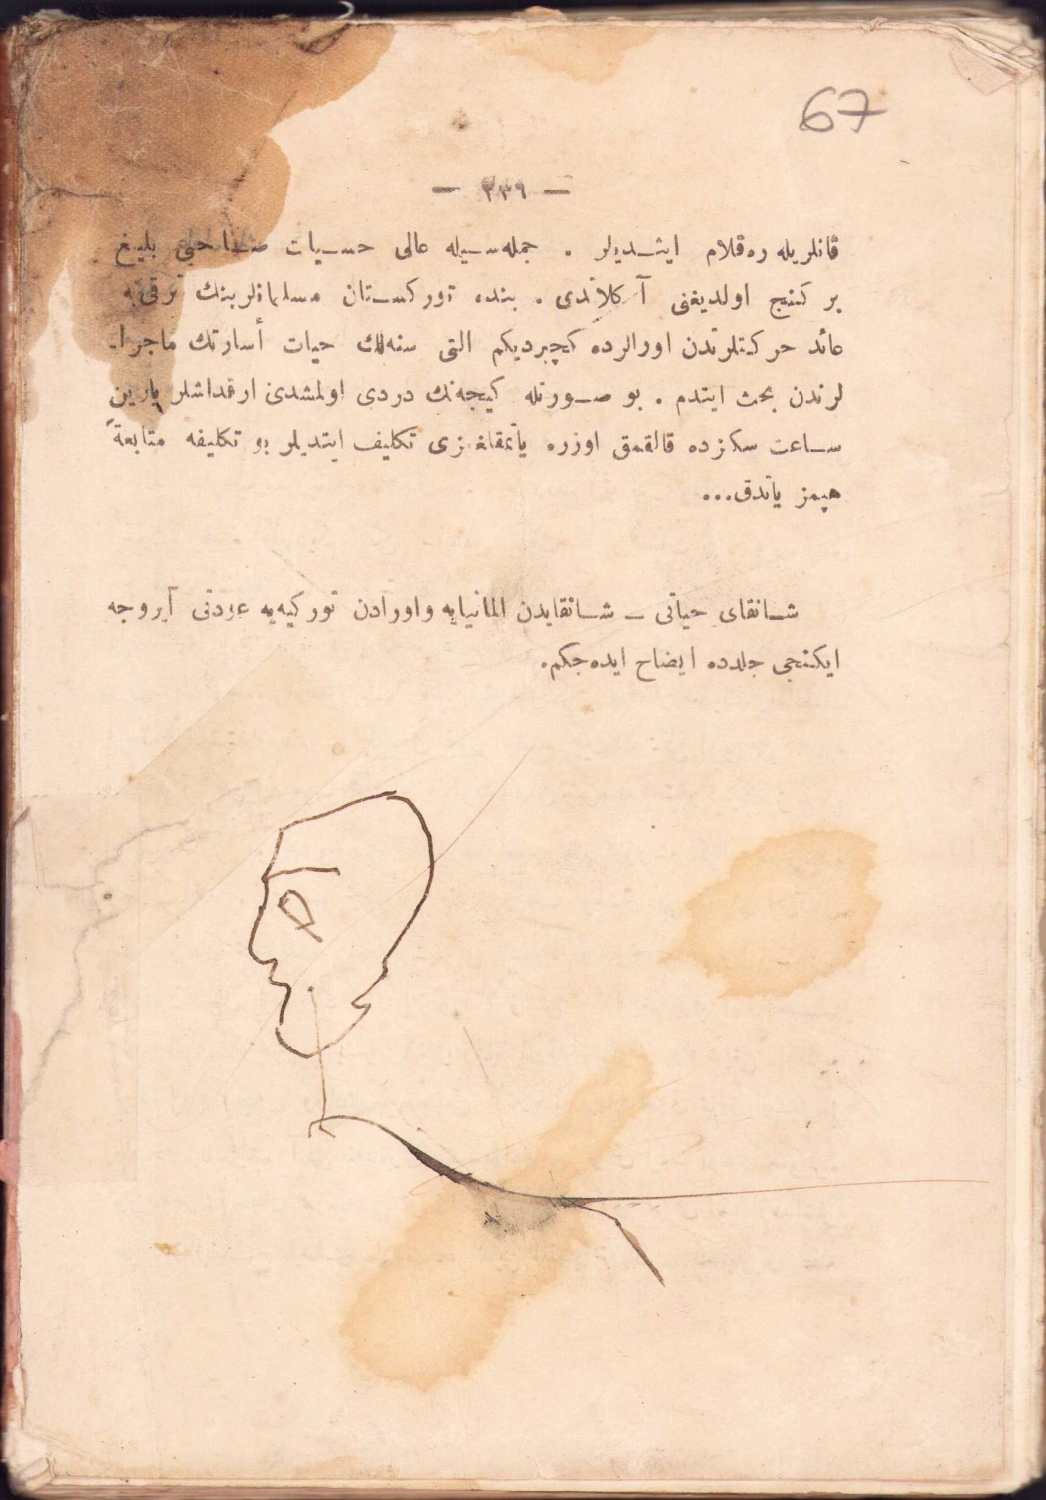 67
— ٢٣٩ —
قانلریله رەقلام ایتـدیلر . جمله‌سـیله عالی حسـیات صـاحبی بلیغ
بر کنج اولدیغنی آ کلاندی . بنده تورکسـتان مسلمانلرینك ترقی‌یه
عائد حرکتلرندن اورالرده کچیردیکم التی سنه‌لك حیات أسارتك ماجرا-
لرندن بحث ایتدم . بو صـورتله کیجه‌نك دردی اولمشدی ارقداشلر یارین
سـاعت سکزده قالقمق اوزره یاتمقلغمزی تکلیف ایتدیلر بو تکلیفه متابعةً
هپمز یاتدق...
شـانقای حیاتی ـ شـانقایدن المانیایه واورادن تورکیه‌یه عودتی آیروجه
ایکنجی جلدده ایضاح ایده‌جکم.